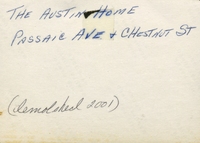 THE AUSTIN HOME
PASSAIC AVE + CHESTNUT ST
(demolshed 2001)